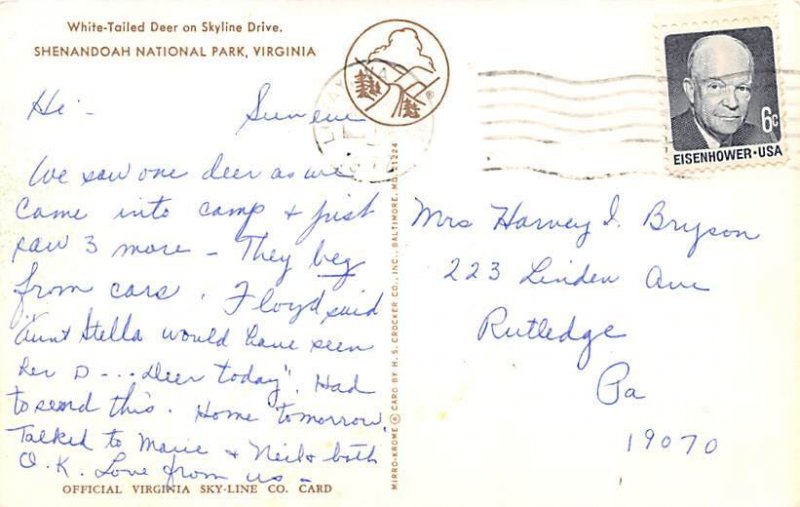 White-Tailed Deer on Skyline Drive.
SHENANDOAH NATIONAL PARK, VIRGINIA
Hi - Sun eve
We saw one deer as we
came into camp + just
saw 3 more - They beg
from cars. Floyd said
"Aunt Stella would have seen
her D--... Deer today". Had
to send this. Home tomorrow.
Talked to Marie + Neil & both
O.K. Love from us -
OFFICIAL VIRGINIA SKY-LINE CO. CARD
MIRRO-KROME ® CARD BY H. S. CROCKER CO., INC., BALTIMORE, MD. 21224
EISENHOWER·USA
6c
Mrs Harvey I. Bryson
223 Linden Ave
Rutledge
Pa
19070